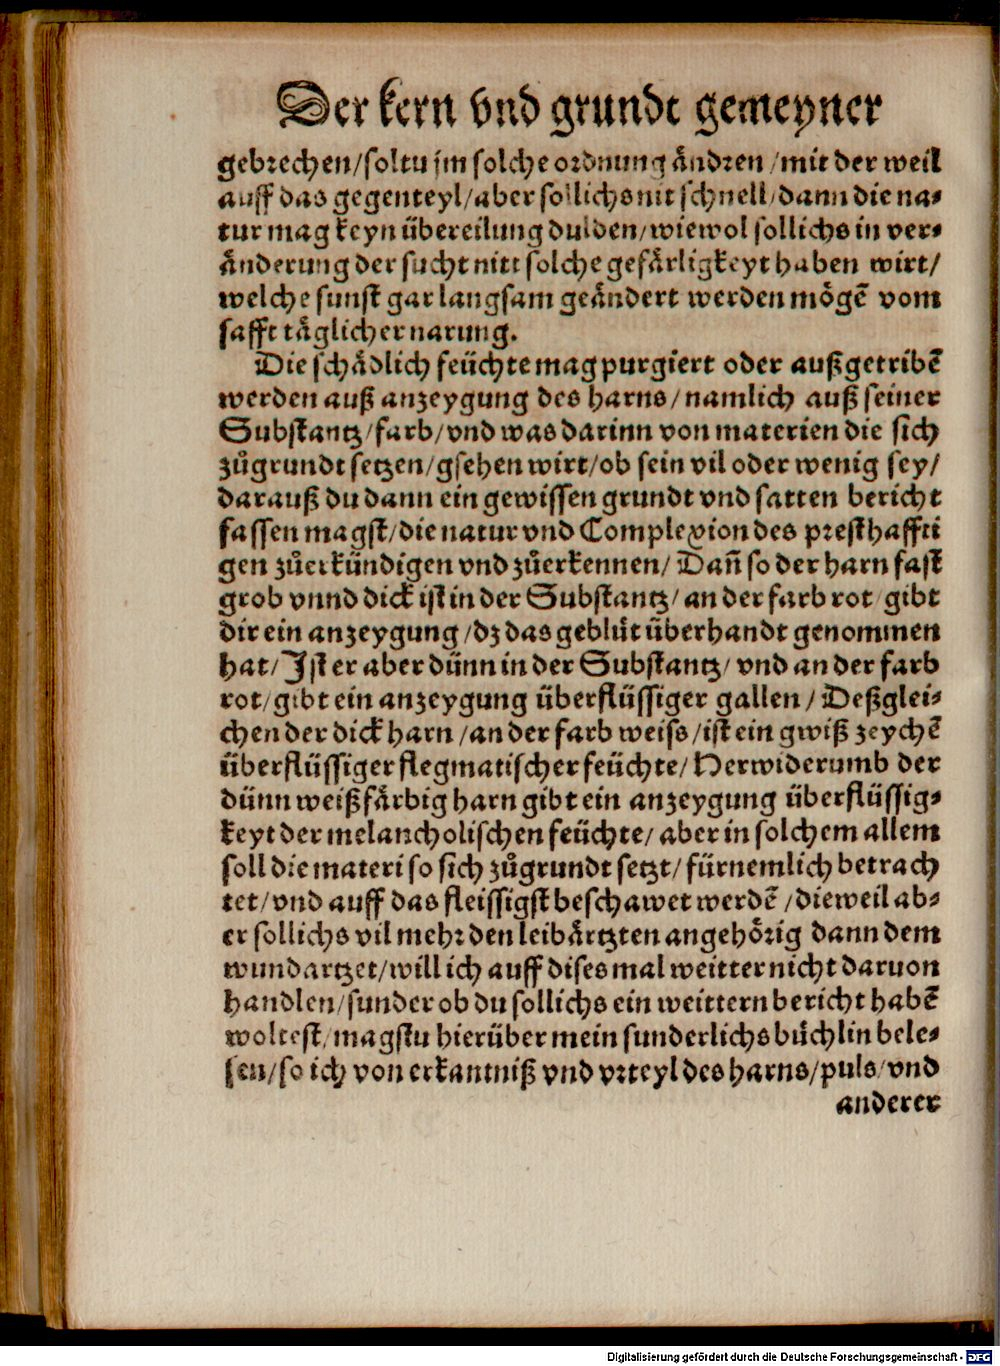 Der kern vnd grundt gemeyner
gebrechen/soltu jm solche ordnung åndren/mit der weil
auff das gegenteyl/aber sollichs nit schnell/dann die na⸗
tur mag keyn übereilung dulden/wiewol sollichs in ver⸗
ånderung der sucht nitt solche gefårligkeyt haben wirt/
welche sunst gar langsam geåndert werden mőgẽ vom
safft tåglicher narung.
Die schådlich feüchte mag purgiert oder außgetribẽ
werden auß anzeygung des harns/namlich auß seiner
Substantz/farb/vnd was darinn von materien die sich
zůgrundt setzen/gsehen wirt/ob sein vil oder wenig sey/
darauß du dann ein gewissen grundt vnd satten bericht
fassen magst/die natur vnd Complexion des presthaffti
gen zůerkündigen vnd zůerkennen/Dañ so der harn fast
grob vnnd dick ist in der Substantz/an der farb rot/gibt
dir ein anzeygung/dz das geblůt überhandt genommen
hat/Ist er aber dünn in der Substantz/vnd an der farb
rot/gibt ein anzeygung überflüssiger gallen/Deßglei⸗
chen der dick harn/an der farb weiss/ist ein gwiß zeychẽ
überflüssiger flegmatischer feüchte/Herwiderumb der
dünn weißfårbig harn gibt ein anzeygung überflüssig⸗
keyt der melancholischen feüchte/aber in solchem allem
soll die materi so sich zůgrundt setzt/fürnemlich betrach
tet/vnd auff das fleissigst beschawet werdẽ/dieweil ab⸗
er sollichs vil mehr den leibårtzten angehőrig dann dem
wundartzet/will ich auff dises mal weitter nicht daruon
handlen/sunder ob du sollichs ein weittern bericht habẽ
woltest/magstu hierüber mein sunderlichs bůchlin bele⸗
sen/so ich von erkantniß vnd vrteyl des harns/puls/vnd
anderer
Digitalisierung gefördert durch die Deutsche Forschungsgemeinschaft - DFG